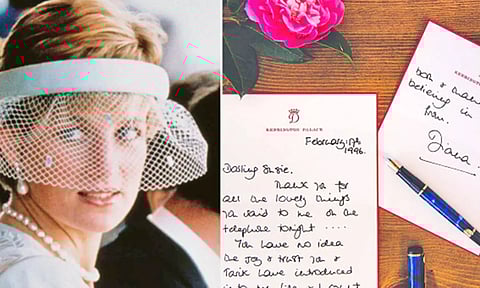 KENSINGTON PALACE
February 17th
1996.
Darling Susie.
Thank you for
all the lovely things
you said to me on the
telephone tonight ....
You have no idea
the joy & trust you &
Tarik have introduced
into my life &
KENSINGTON PALACE
believing in
Diana.